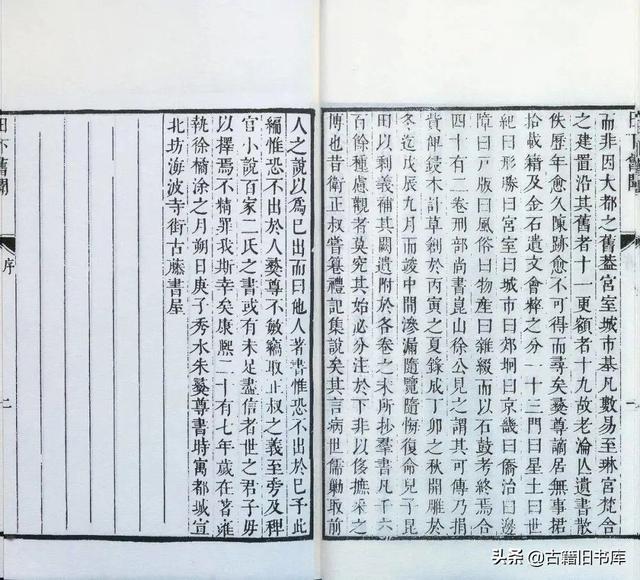 日下舊聞
一
而非因大都之舊葢宮室城市基凡數易至琳宮梵舎
之建置沿其舊者十一更額者十九故老淪亾遺書散
佚歷年愈久陳跡愈不可得而尋矣彝尊謫居無事捃
拾載籍及金石遺文會稡之分一十三門曰星土曰世
紀曰形勝曰宮室曰城市曰郊坰曰京畿曰僑治曰邊
障曰戸版曰風俗曰物産曰雜綴而以石鼓考終焉合
四十有二卷刑部尚書崑山徐公見之謂其可傳乃捐
貲俾鋟木計草創於丙寅之夏錄成丁卯之秋開雕於
冬迄戊辰九月而竣中間滲漏隨覽隨悔復命兒子昆
田以剩義補其闕遺附於各卷之末所抄羣書凡千六
百餘種慮觀者莫究其始必分注於下非以侈摭采之
博也昔衛正叔嘗纂禮記集說矣其言病世儒勦取前
人之說以爲已出而曰他人著書惟恐不出於已予此
編惟恐不出於人彝尊不敏竊取正叔之義至旁及稗
官小說百家二氏之書或有未足盡信者世之君子毋
以擇焉不精罪我斯幸矣康熙二十有七年歲在著雍
執徐橘涂之月朔日庚子秀水朱彝尊書時寓都城宣
北坊海波寺街古藤書屋
日下舊聞
序
二
头条 @古籍旧书库